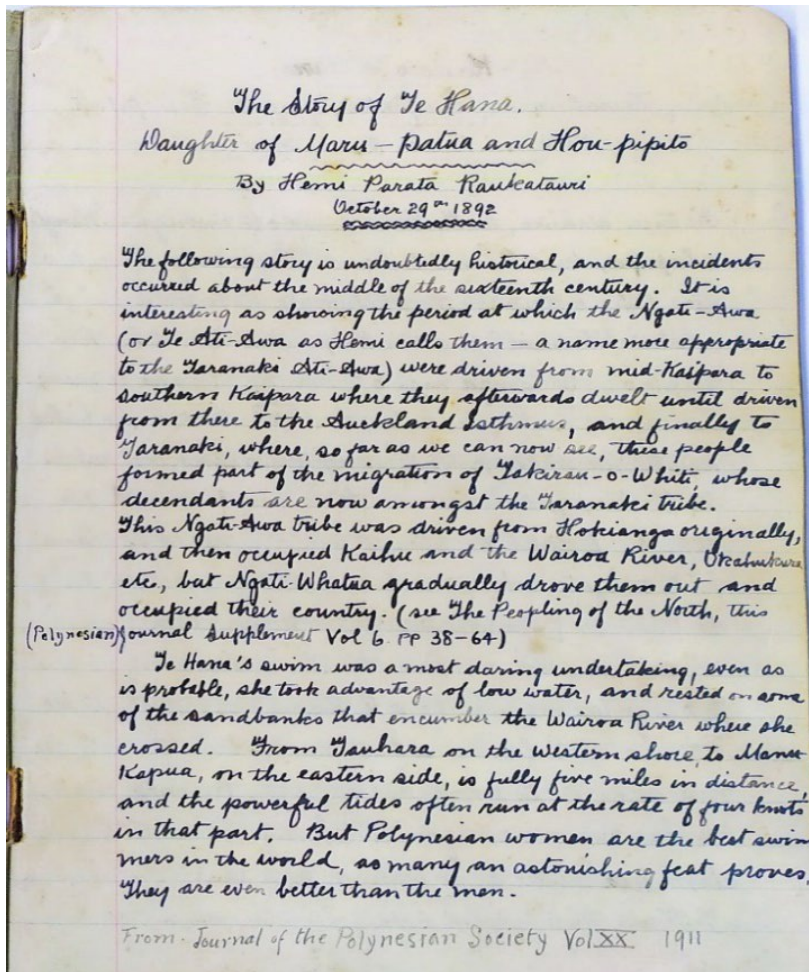 The Story of Te Hana.
Daughter of Maru - patua and Hou-pipito
By Hemi Parata Raukatauri
October 29th 1892
The following story is undoubtedly historical, and the incidents
occurred about the middle of the sixteenth century. It is
interesting as showing the period at which the Ngati-Awa
(or Te Ati-Awa as Hemi calls them - a name more appropriate
to the Taranaki Ati-Awa) were driven from mid-Kaipara to
southern Kaipara where they afterwards dwelt until driven
from there to the Auckland Isthmus, and finally to
Taranaki, where, so far as we can now see, these people
formed part of the migration of Takirau-o-Whiti, whose
decendants are now amongst the Taranaki tribe.
This Ngati-Awa tribe was driven from Hokianga originally,
and then occupied Kaihu and the Wairoa River, Okahukura
etc, but Ngati-Whatua gradually drove them out and
occupied their country. (see The Peopling of the North, this
(Polynesian) Journal Supplement Vol 6 PP 38-64)
Te Hana's swim was a most daring undertaking, even as
is probable, she took advantage of low water, and rested on some
of the sandbanks that encumber the Wairoa River where she
crossed. From Tauhara on the western shore, to Manu
Kapua, on the eastern side, is fully five miles in distance,
and the powerful tides often run at the rate of four knots
in that part. But Polynesian women are the best swim
mers in the world, as many an astonishing feat proves.
They are even better than the men.
From. Journal of the Polynesian Society Vol XX 1911